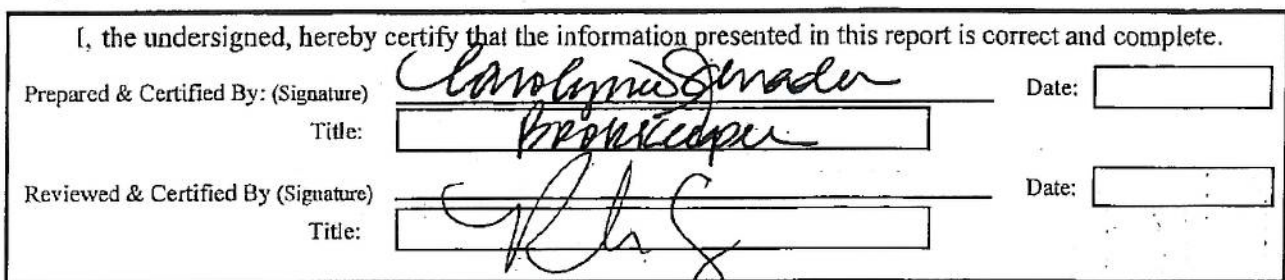 I, the undersigned, hereby certify that the information presented in this report is correct and complete.
Prepared & Certified By: (Signature) Date:
Title: Bookkeeper
Reviewed & Certified By (Signature) Date:
Title: